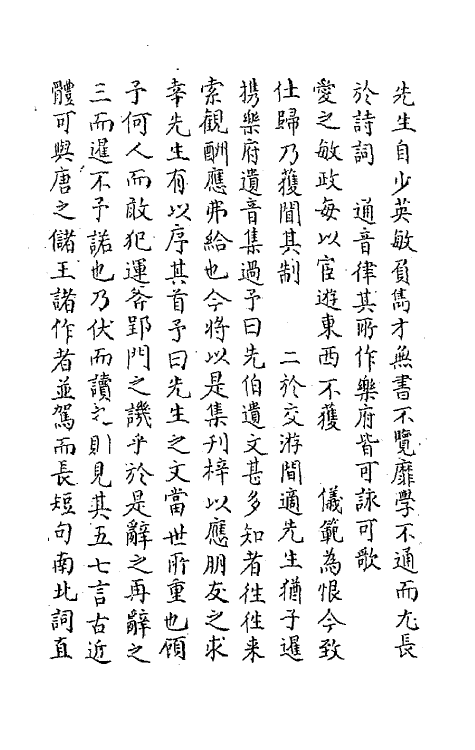 先生自少英敏負雋才無書不覽靡學不通而尤長
於詩詞　通音律其所作樂府皆可詠可歌
愛之敏政每以宦遊東西不獲　　儀範為恨今致
仕歸乃獲間其制　　二於交游間適先生猶子暹
携樂府遺音集過予曰先伯遺文甚多知者往往来
索観酬應弗給也今將以是集刊梓以應朋友之求
幸先生有以序其首予曰先生之文當世所重也顧
予何人而敢犯運斧郢門之譏乎於是辭之再辭之
三而暹不予諾也乃伏而讀之則見其五七言古近
體可與唐之儲王諸作者並駕而長短句南北詞直